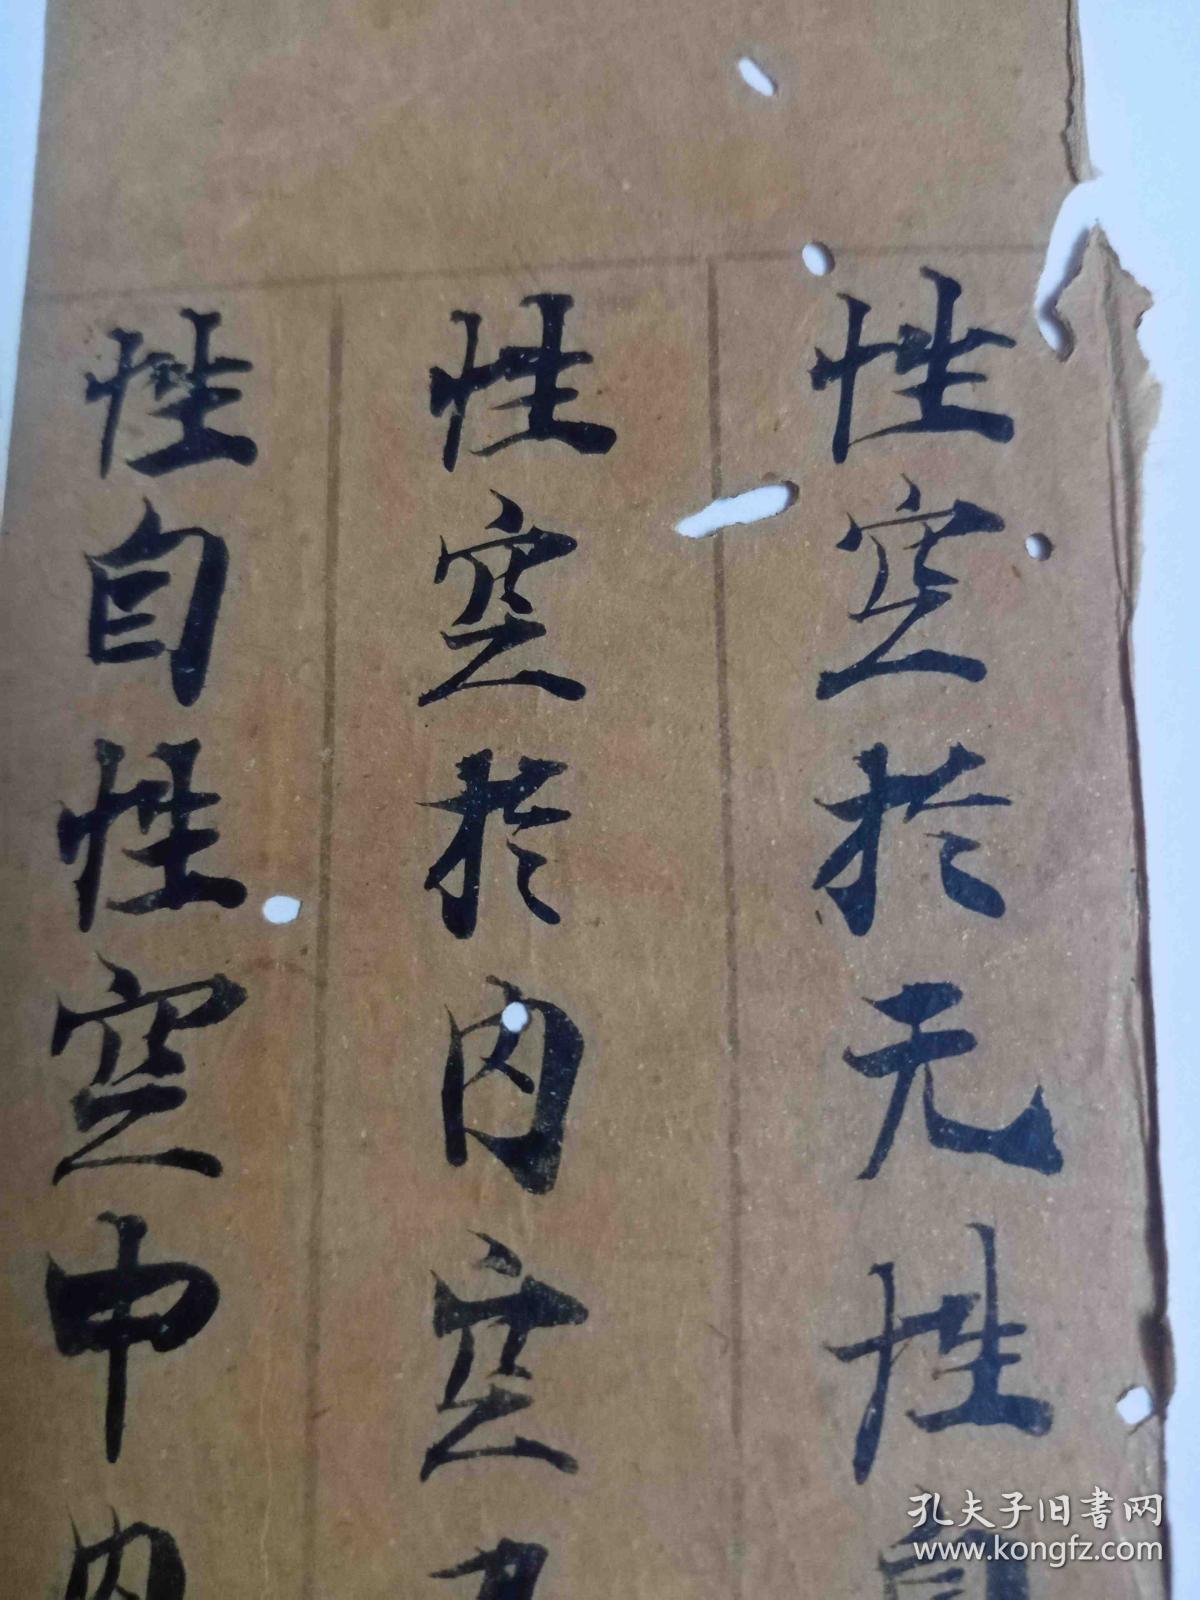 性空於无性自
性空於内空
性自性空中内
孔夫子旧書网
www.kongfz.com